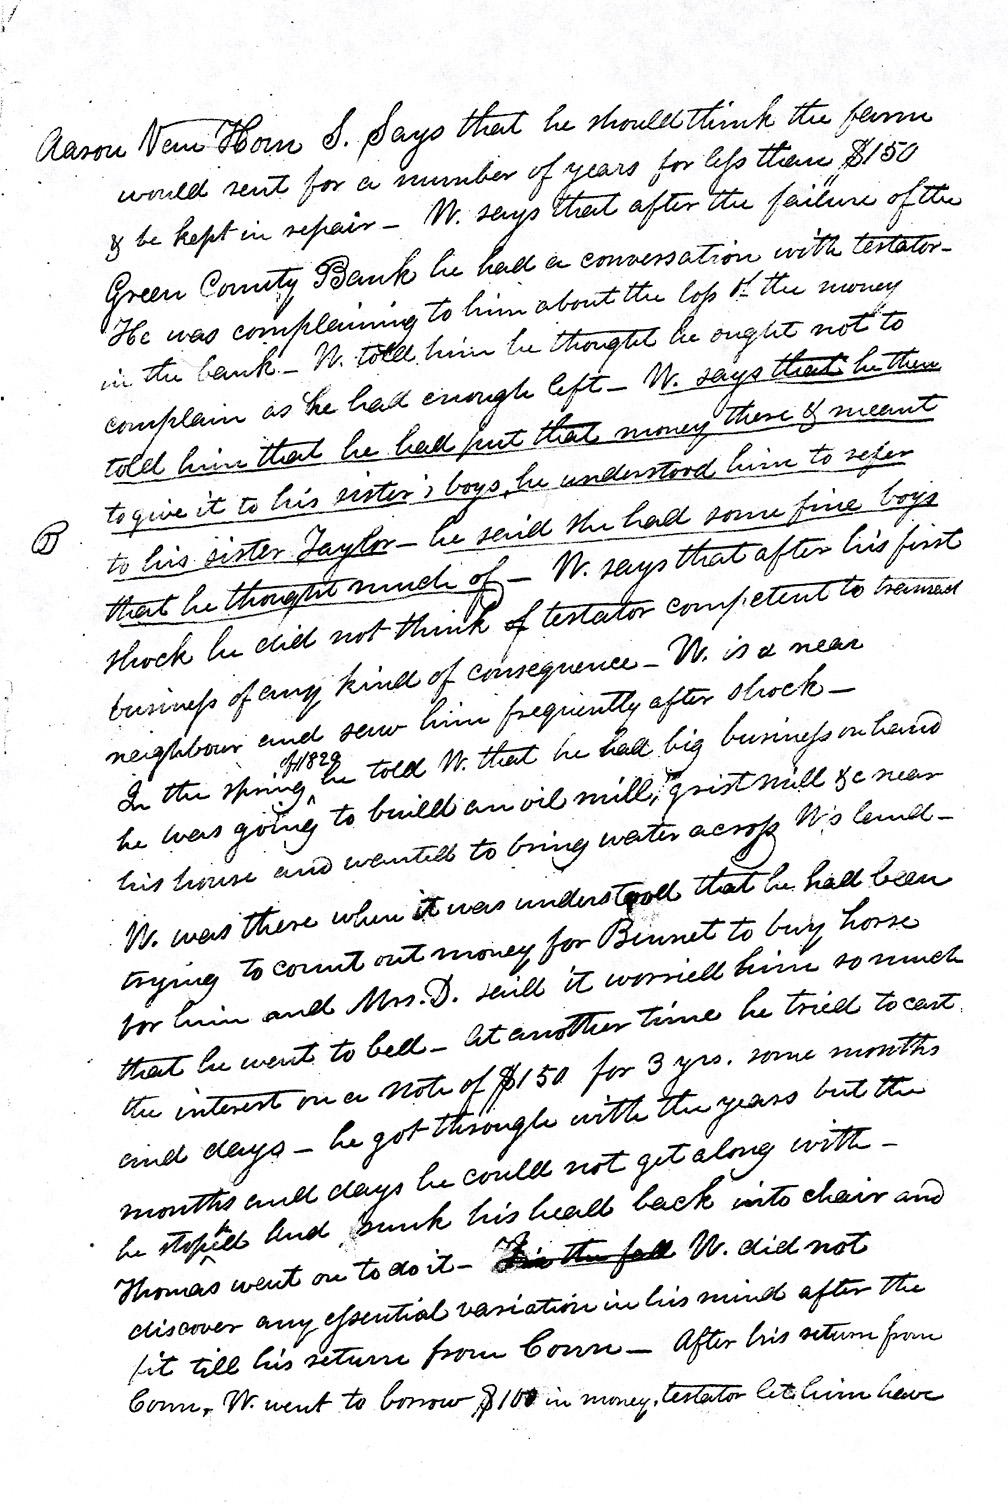 Aaron Van Horn S. Says that he should think the farm
would rent for a number of years for less than $150
& be kept in repair – W. says that after the failure of the
Green County Bank he had a conversation with testator –
He was complaining to him about the loss of the money
in the bank – W. told him he thought he ought not to
complain as he had enough left – W. says that he then
told him that he had put that money there & meant
to give it to his sister's boys, he understood him to refer
to his sister Taylor – he said she had some fine boys
B
that he thought much of – W. says that after his first
shock he did not think of testator competent to transact
business of any kind of consequence – W. is a near
neighbour and saw him frequently after shock –
In the spring of 1829 he told W. that he had big business on hand
he was going to build an oil mill, grist mill &c near
his house and wanted to bring water across W's land –
W. was there when it was understood that he had been
trying to count out money for Bennet to buy horse
for him and Mrs. D. said it worried him so much
that he went to bed – At another time he tried to cast
the interest on a note of $150 for 3 yrs. some months
and days – he got through with the years but the
months and days he could not get along with –
he stopped and sunk his head back into chair and
Thomas went on to do it – In the fall W. did not
discover any essential variation in his mind after the
fit till his return from Conn – After his return from
Conn. W. went to borrow $100 in money, testator let him have